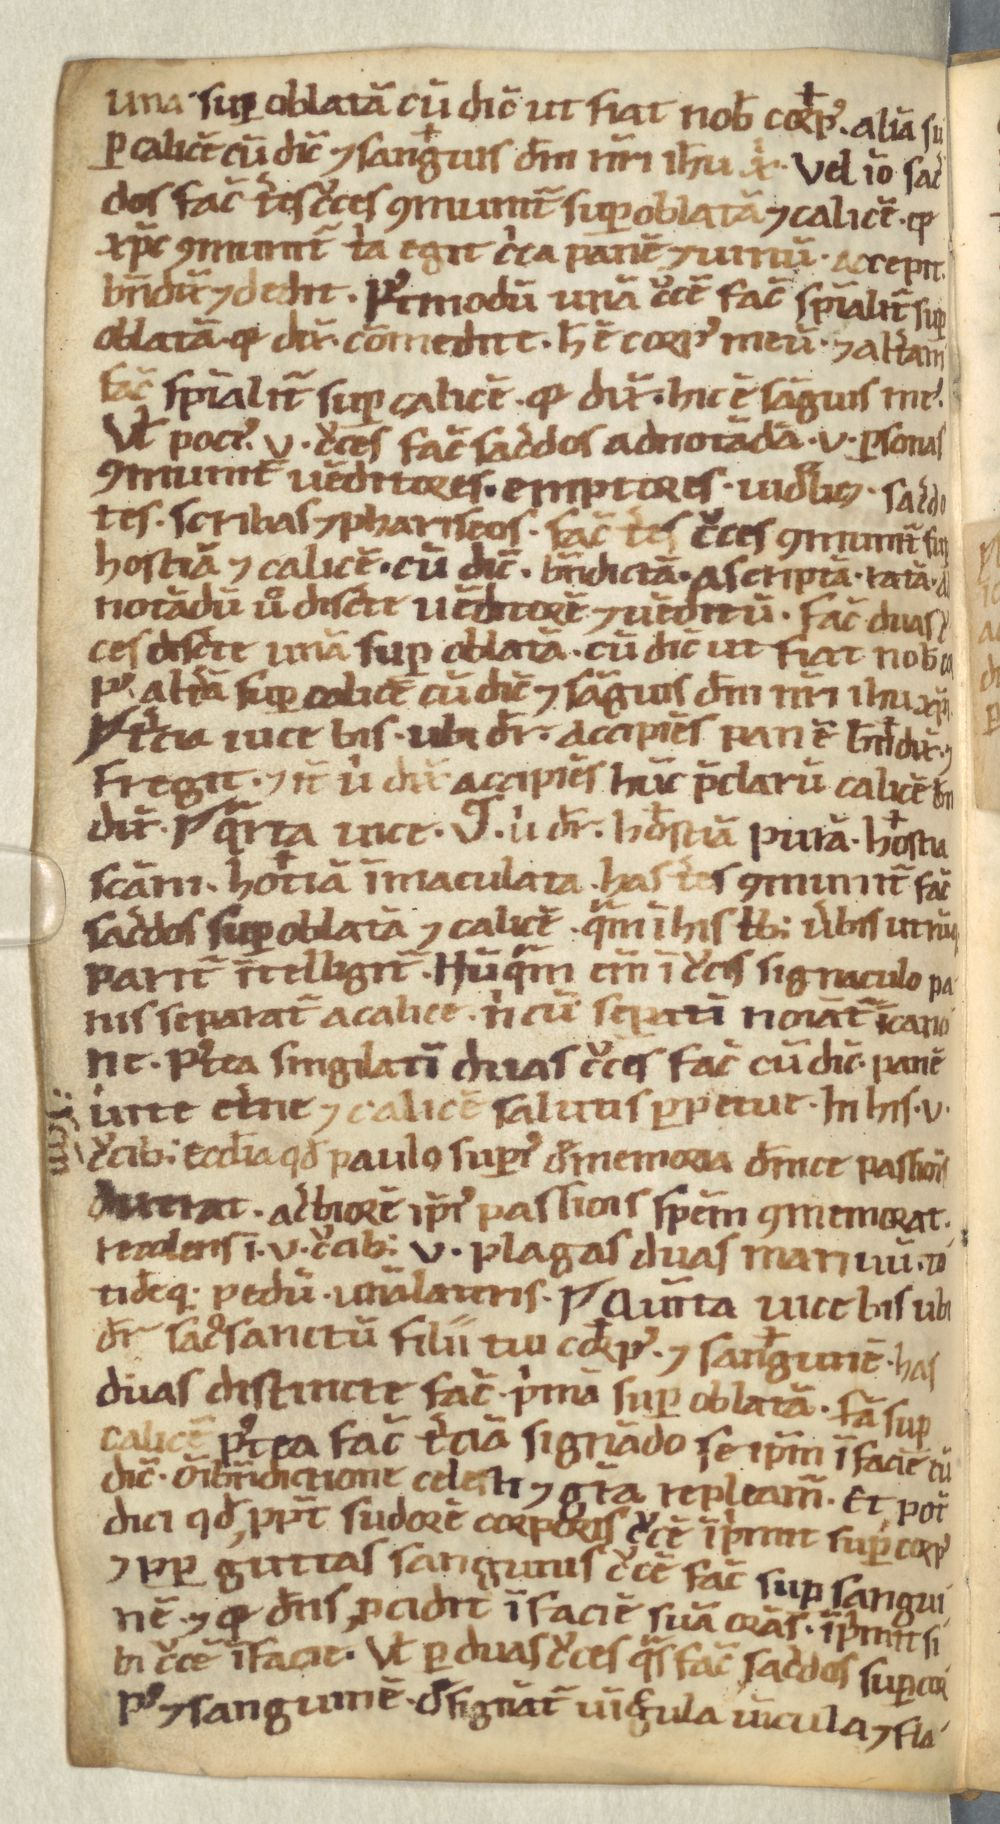 una sup oblatā cū dic̄ ut fiat nob̄ corpꝰ. aliā su
ꝑ calicē cū dic̄ ⁊ sanguis dn̄i nr̄i ih̄u x̄. Vel iō sac̄
dos fac̄ t̄es c̄ces ꝯmunit̄ sup oblatā ⁊ calicē. qꝫ
xp̄c ꝯmunit̄ ꝯmunit̄ egit c̄ca panē ⁊ uinū. accepit.
bn̄dix̄ ⁊ dedit. Pꝰtmodū unā c̄cē fac̄ spīalit̄ sup
oblatā. qꝫ dix̄. comedite. h̄ ē corpꝰ meū. ⁊ alt̄am
fac̄ spīalit̄ sup calicē. qꝫ dix̄. hic ē sāguis mꝰ.
Vl̄ pociꝰ. v. c̄ces fac̄ sac̄dos ad notādā. v. ꝑsonas
ꝯmunit̄ uēditores. emptores. sac̄do
tes. scribas ⁊ phariseos. fac̄ t̄es c̄ces ꝯmunit̄ sup
hostiā ⁊ calicē. cū dic̄. bn̄dictā. ascriptā. ratā. ad
notādū ů disc̄te uēditorē ⁊ uēditū. fac̄ duas c̄
ces disc̄te unā sup oblatā. cū dic̄ ut fiat nob̄ co
pꝰ. alt̄ā sup calicē cū dic̄ ⁊ sāguis dn̄i nr̄i ih̄u xp̄i.
T̄cia uice bis. ubi dr̄. accipiēs panē bn̄dix̄. ⁊
fregit. ⁊ it̄ ů dix̄ accipiēs hūc p̄clarū calicē bn̄
dix̄. Qr̄ta uice. ů dr̄. hostiā purā. hostiā
scām. hotiā īmaculata. has t̄es ꝯmunit̄ fac̄
sac̄dos sup oblatā ⁊ calicē. qm̄ ī his t̄b; ūbis utrūq
parit̄ ītelligit̄. Nūqm̄ em̄ ī c̄cis signaculo pa
nis separat̄ a calice. n̄ cū sepati noīat̄ ī cano
ne. Pꝰtea singilati duas c̄ces fac̄ cū dic̄. panē
uite et̄ne ⁊ calicē salutis ꝑpetue. In his. v.
c̄cib; ecclia qd̄ paulo supiꝰ memoria dn̄ice passiois
dixerat. ac̄biorē ip̄iꝰ passiois spēm ꝯmemorat.
recolens ī. v. c̄cib; v. plagas duas manuū. to
tideq; pedū. unā lateris. Quīta uice bis ubi
dr̄ sac̊sanctū filii tui corpꝰ. ⁊ sanguinē. has
duas distincte fac̄. p̄mā sup oblatā. sup
calicē pꝰtea fac̄ t̄ciā signādo se ip̄m ī faciē cū
dic̄. oī bn̄dictione celesti ⁊ gr̄a repleam̄. Et pot̄
dici qd̄ ppt̄ sudorē corporis c̄cē īp̄mit sup corpꝰ
⁊ pp guttas sanguinis c̄cē fac̄ sup sangui
nē. ⁊ qꝫ dn̄s p̄cidit ī faciē suā orās. īp̄mit si
bi c̄cē ī facie. Vl̄ ꝑ duas c̄ces qs̄ fac̄ sac̄dos sup cor
pꝰ ⁊ sanguinē. dsignāt̄ uīcula ⁊ fla